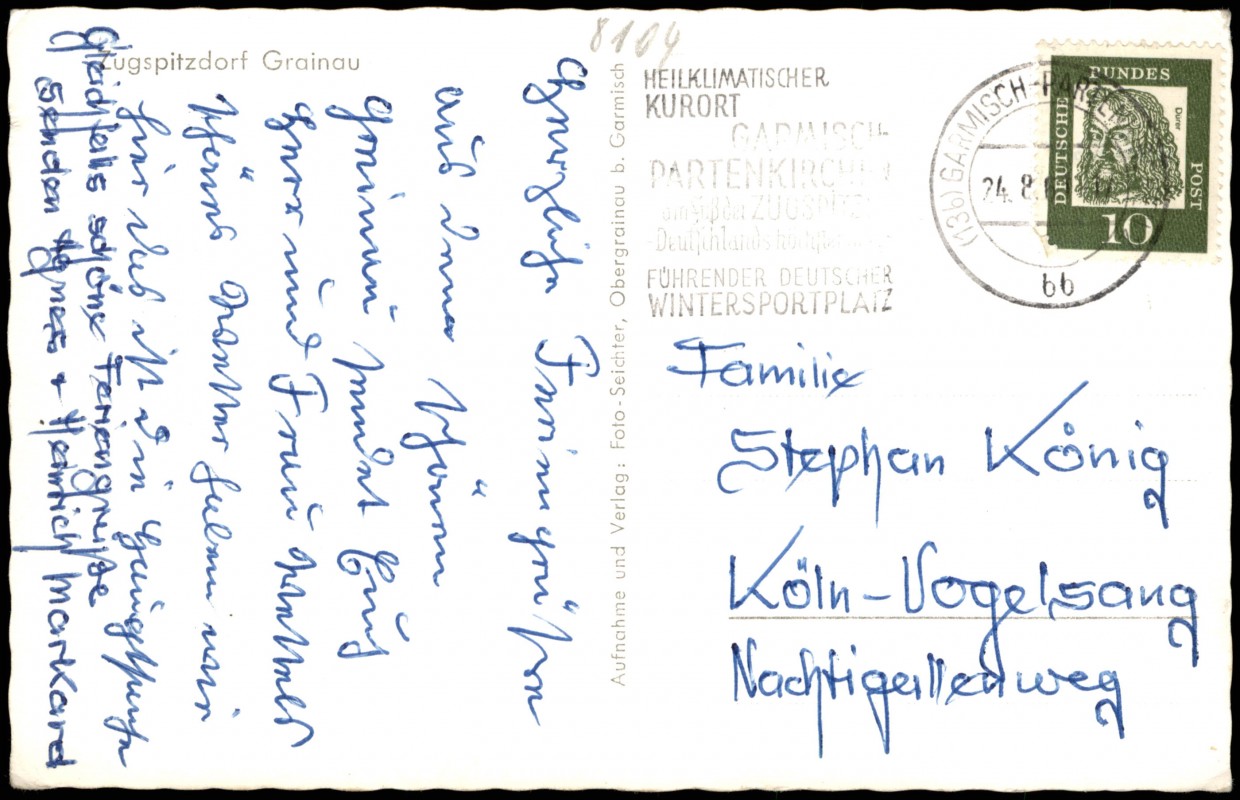 Zugspitzdorf Grainau
8104
Herzliche Feriengrüße
aus dem schönen
Grainau sendet Euch
Herr und Frau
Schönes Wetter haben wir
hier das ist die Hauptsache
Gleichfalls schöne Feriengrüße
senden Agnes + Heinrich Markard
Aufnahme und Verlag: Foto-Seichter, Obergrainau b. Garmisch
HEILKLIMATISCHER
KURORT
GARMISCH-
PARTENKIRCHEN
am Fuß der ZUGSPITZE
Deutschlands höchstem
FÜHRENDER DEUTSCHER
WINTERSPORTPLATZ
(13b) GARMISCH-PARTENK
24. 8.
bb
DEUTSCHE
BUNDES
POST
Dürer
10
Familie
Stephan König
Köln-Vogelsang
Nachtigallenweg